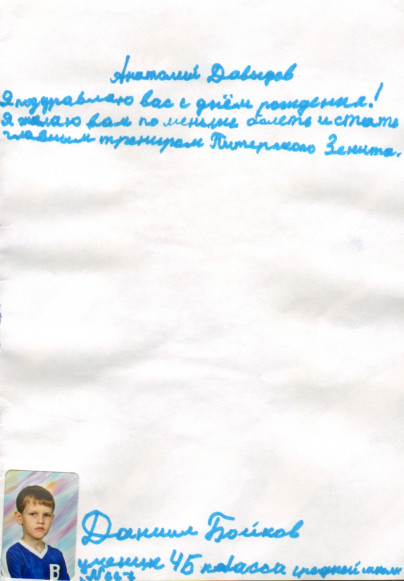 Анатолий Давыдов
Я поздравляю вас с днём рождения!
Я желаю вам по меньше болеть и стать
главным тренером Питерского Зенита.
Даниил Бойков
ученик 4Б класса средней школы
В